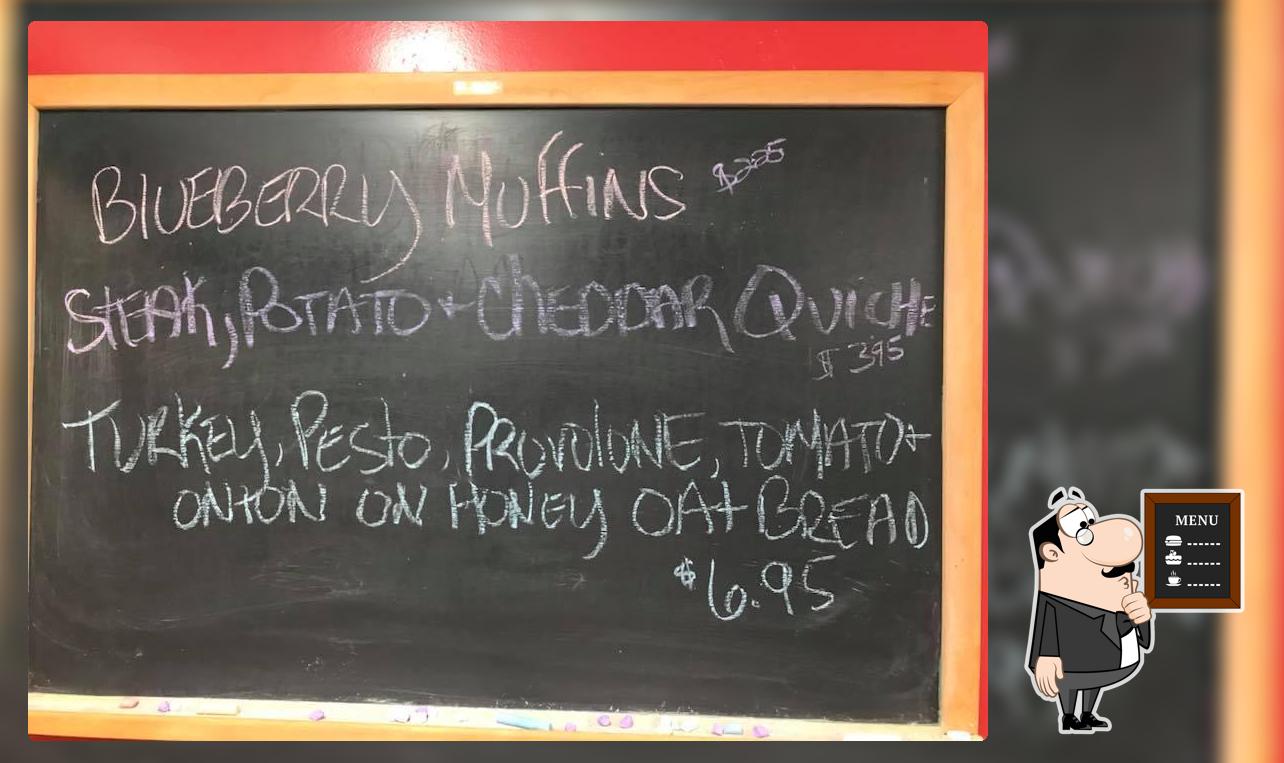 BlUEBERRY MuffiNS $2.25
STEAK, POTATO + ChEDDAR QUICHE
$3.95
TURKEY, PEsto, PROVOlONE, TOMATO +
ONION ON HONEY OAt BREAD
$6.95
MENU